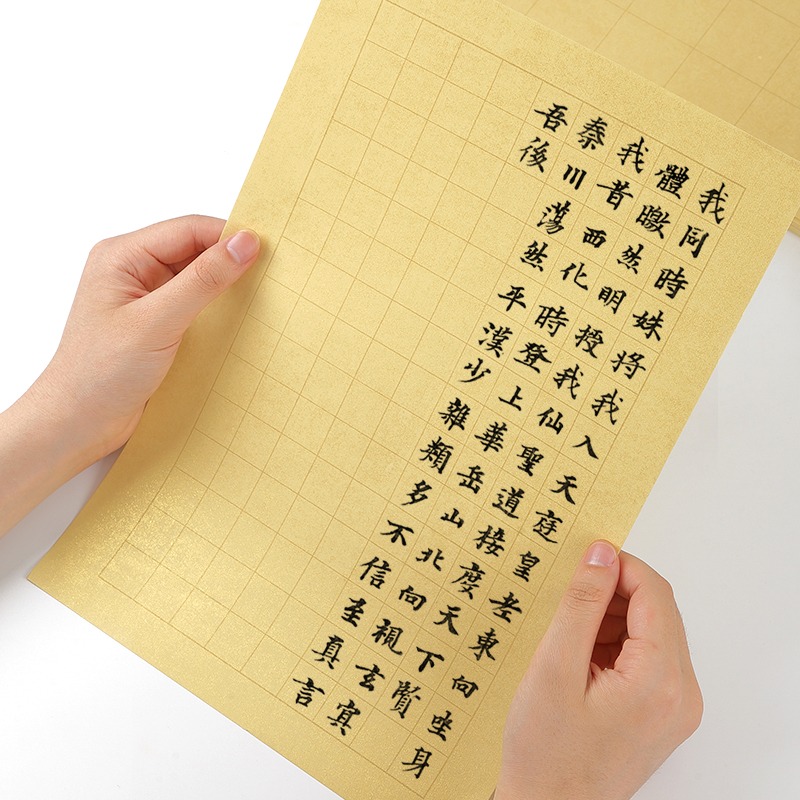 我同時妹將我入天庭皇老東向坐身
體曒然明授我仙聖道接度天下賢
我昔西化時登上華岳山北向視玄冥
秦川蕩然平漢少雜類多不信至真言
吾後